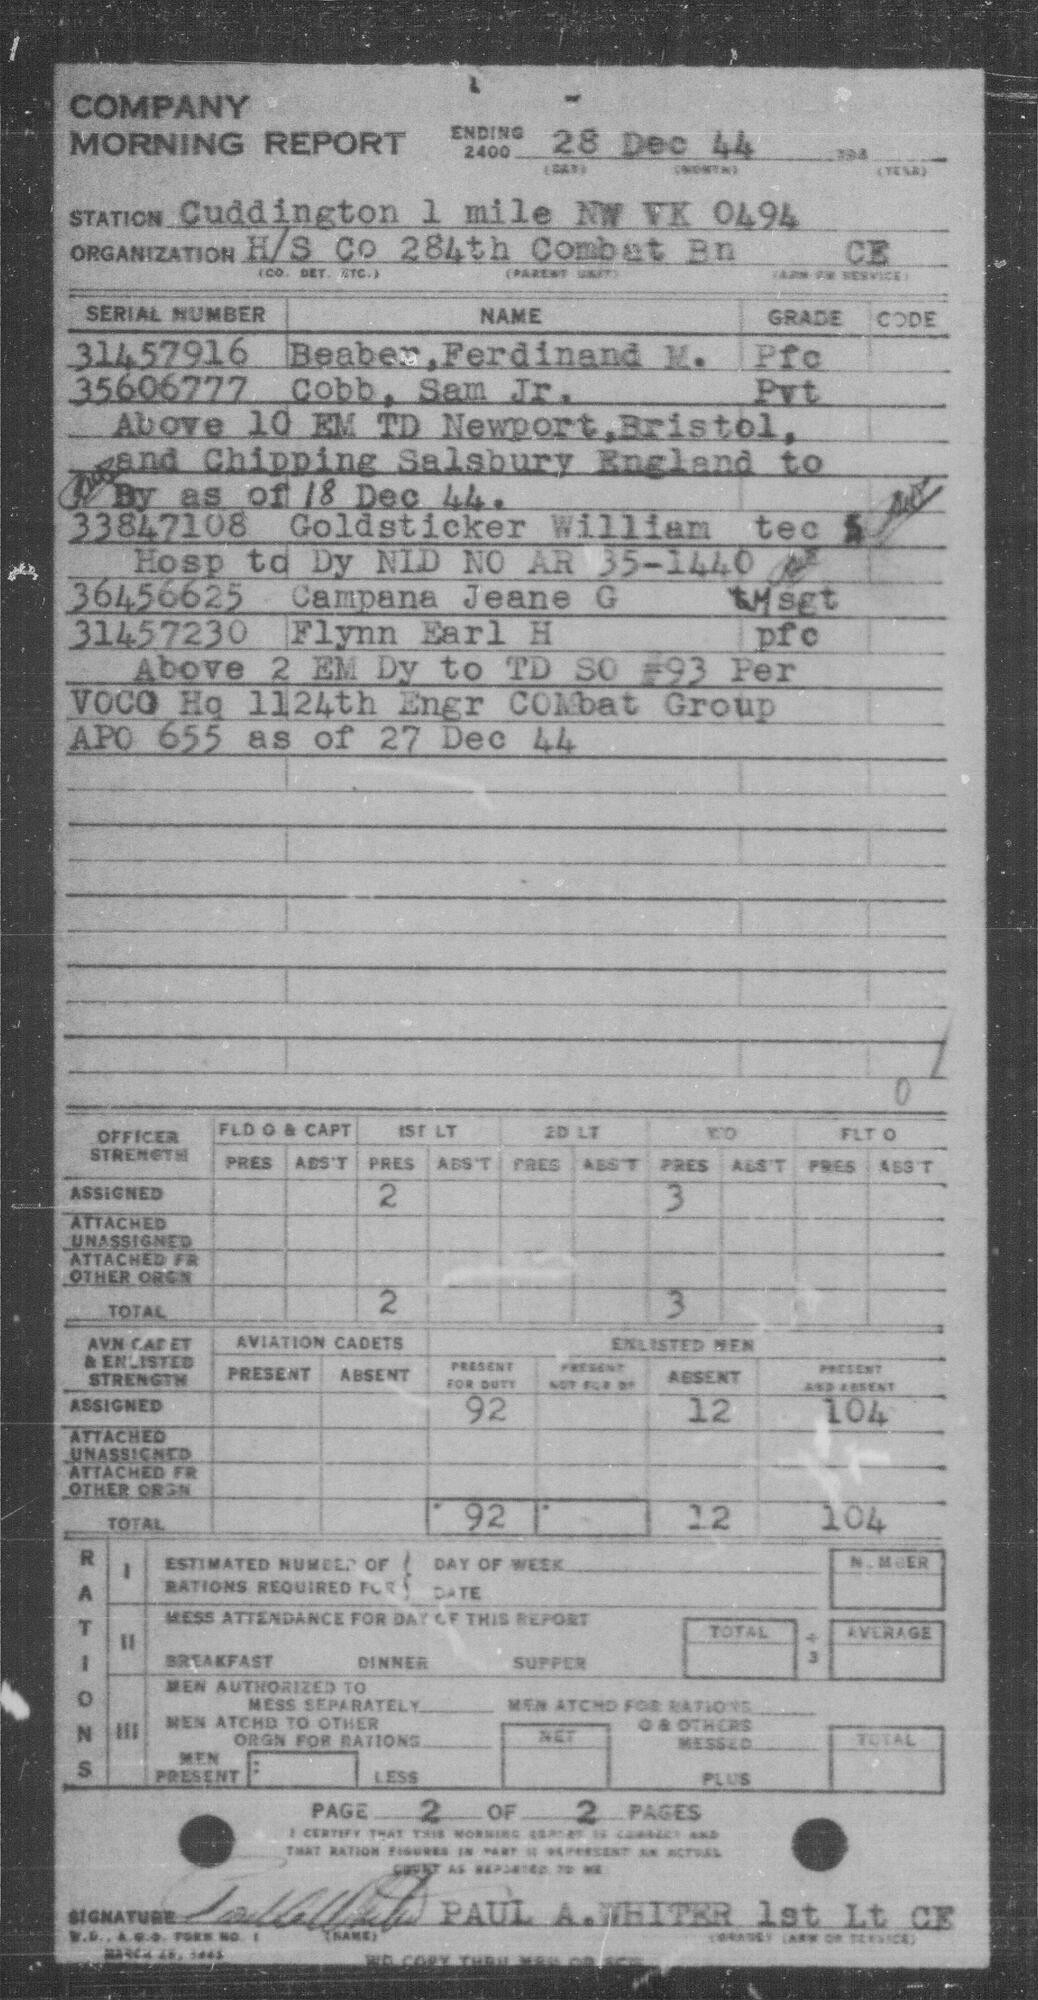 COMPANY
MORNING REPORT ENDING 2400 28 Dec 44
(DAY) (MONTH) (YEAR)
STATION Cuddington 1 mile NW VK 0494
ORGANIZATION H/S Co 284th Combat Bn CE
(CO. DET. ETC.) (PARENT UNIT) (ARM OR SERVICE)
SERIAL NUMBER NAME GRADE CODE
31457916 Beaber,Ferdinand M. Pfc
35606777 Cobb, Sam Jr. Pvt
Above 10 EM TD Newport,Bristol,
and Chipping Salsbury England to
By as of 18 Dec 44.
33847108 Goldsticker William tec 5
Hosp to Dy NLD NO AR 35-1440
36456625 Campana Jeane G tMsgt
31457230 Flynn Earl H pfc
Above 2 EM Dy to TD SO #93 Per
VOCO Hq 1124th Engr COMbat Group
APO 655 as of 27 Dec 44
0
OFFICER STRENGTH FLD O & CAPT 1ST LT 2D LT WO FLT O
PRES ABS'T PRES ABS'T PRES ABS'T PRES ABS'T PRES ABS'T
ASSIGNED 2 3
ATTACHED UNASSIGNED
ATTACHED FR OTHER ORGN
TOTAL 2 3
AVN CADET & ENLISTED STRENGTH AVIATION CADETS ENLISTED MEN
PRESENT ABSENT PRESENT FOR DUTY PRESENT NOT FOR DY ABSENT PRESENT AND ABSENT
ASSIGNED 92 12 104
ATTACHED UNASSIGNED
ATTACHED FR OTHER ORGN
TOTAL 92 12 104
RATIONS
I ESTIMATED NUMBER OF RATIONS REQUIRED FOR { DAY OF WEEK NUMBER
DATE
II MESS ATTENDANCE FOR DAY OF THIS REPORT TOTAL ÷ 3 AVERAGE
BREAKFAST DINNER SUPPER
III MEN AUTHORIZED TO
MESS SEPARATELY MEN ATCHD FOR RATIONS
MEN ATCHD TO OTHER
ORGN FOR RATIONS NET O & OTHERS MESSED TOTAL
MEN PRESENT LESS PLUS
PAGE 2 OF 2 PAGES
I CERTIFY THAT THIS MORNING REPORT IS CORRECT AND
THAT RATION FIGURES IN PART II REPRESENT AN ACTUAL
COUNT AS REPORTED TO ME
SIGNATURE Paul A Whiter PAUL A.WHITER 1st Lt CE
W.D., A.G.O. FORM NO. 1 (NAME) (GRADE) (ARM OR SERVICE)